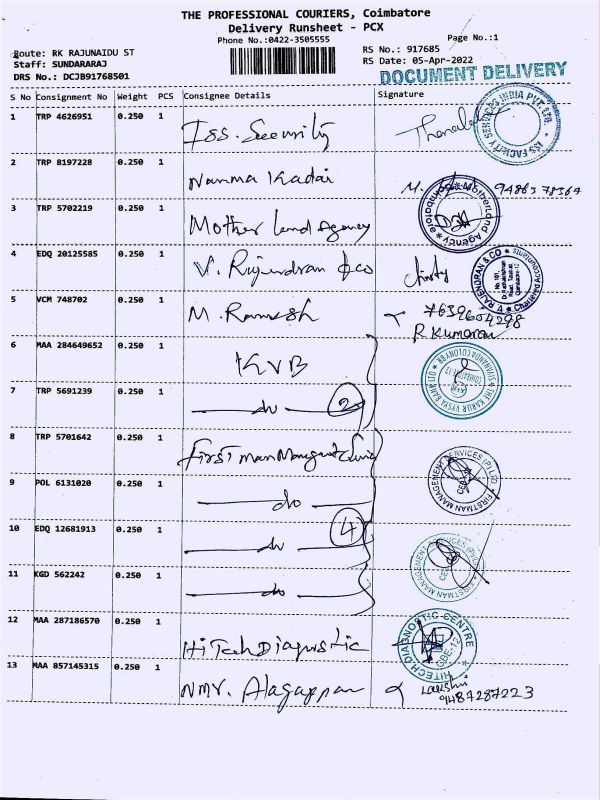 THE PROFESSIONAL COURIERS, Coimbatore
Delivery Runsheet - PCX
Phone No.:0422-3505555
Page No.:1
Route: RK RAJUNAIDU ST
RS No.: 917685
Staff: SUNDARARAJ
RS Date: 05-Apr-2022
DRS No.: DCJB91768501
DOCUMENT DELIVERY
S No Consignment No Weight PCS Consignee Details Signature
1 TRP 4626951 0.250 1 Iss. Security
ISS FACILITY SERVICES INDIA PVT. LTD.
2 TRP 8197228 0.250 1 Nanma Kadai
3 TRP 5702219 0.250 1 Mother Land Agency
MotherLand Agency
4 EDQ 20125585 0.250 1 V. Rajendran & co
V RAJENDRAN & CO Chartered Accountants
5 VCM 748702 0.250 1 M. Ramesh 7639604298
R. Kumaran
6 MAA 284649652 0.250 1 KVB
THE KARUR VYSYA BANK LTD SIVANANDA COLONY
7 TRP 5691239 0.250 1 do 2
8 TRP 5701642 0.250 1 First man
FIRSTMAN MANAGEMENT SERVICES (P) LTD
9 POL 6131020 0.250 1 do
10 EDQ 12681913 0.250 1 do 4
FIRSTMAN MANAGEMENT SERVICES
11 KGD 562242 0.250 1 do
12 MAA 287186570 0.250 1 HiTech Diagnostic
HITECH DIAGNOSTIC CENTRE CBE-12
13 MAA 857145315 0.250 1 NMV. Alagappan Lakshmi
9487287223